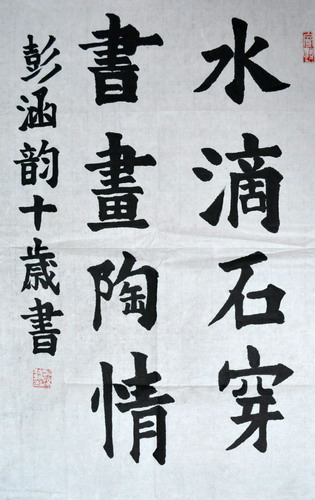 水滴石穿
書畫陶情
彭涵韵十歲書